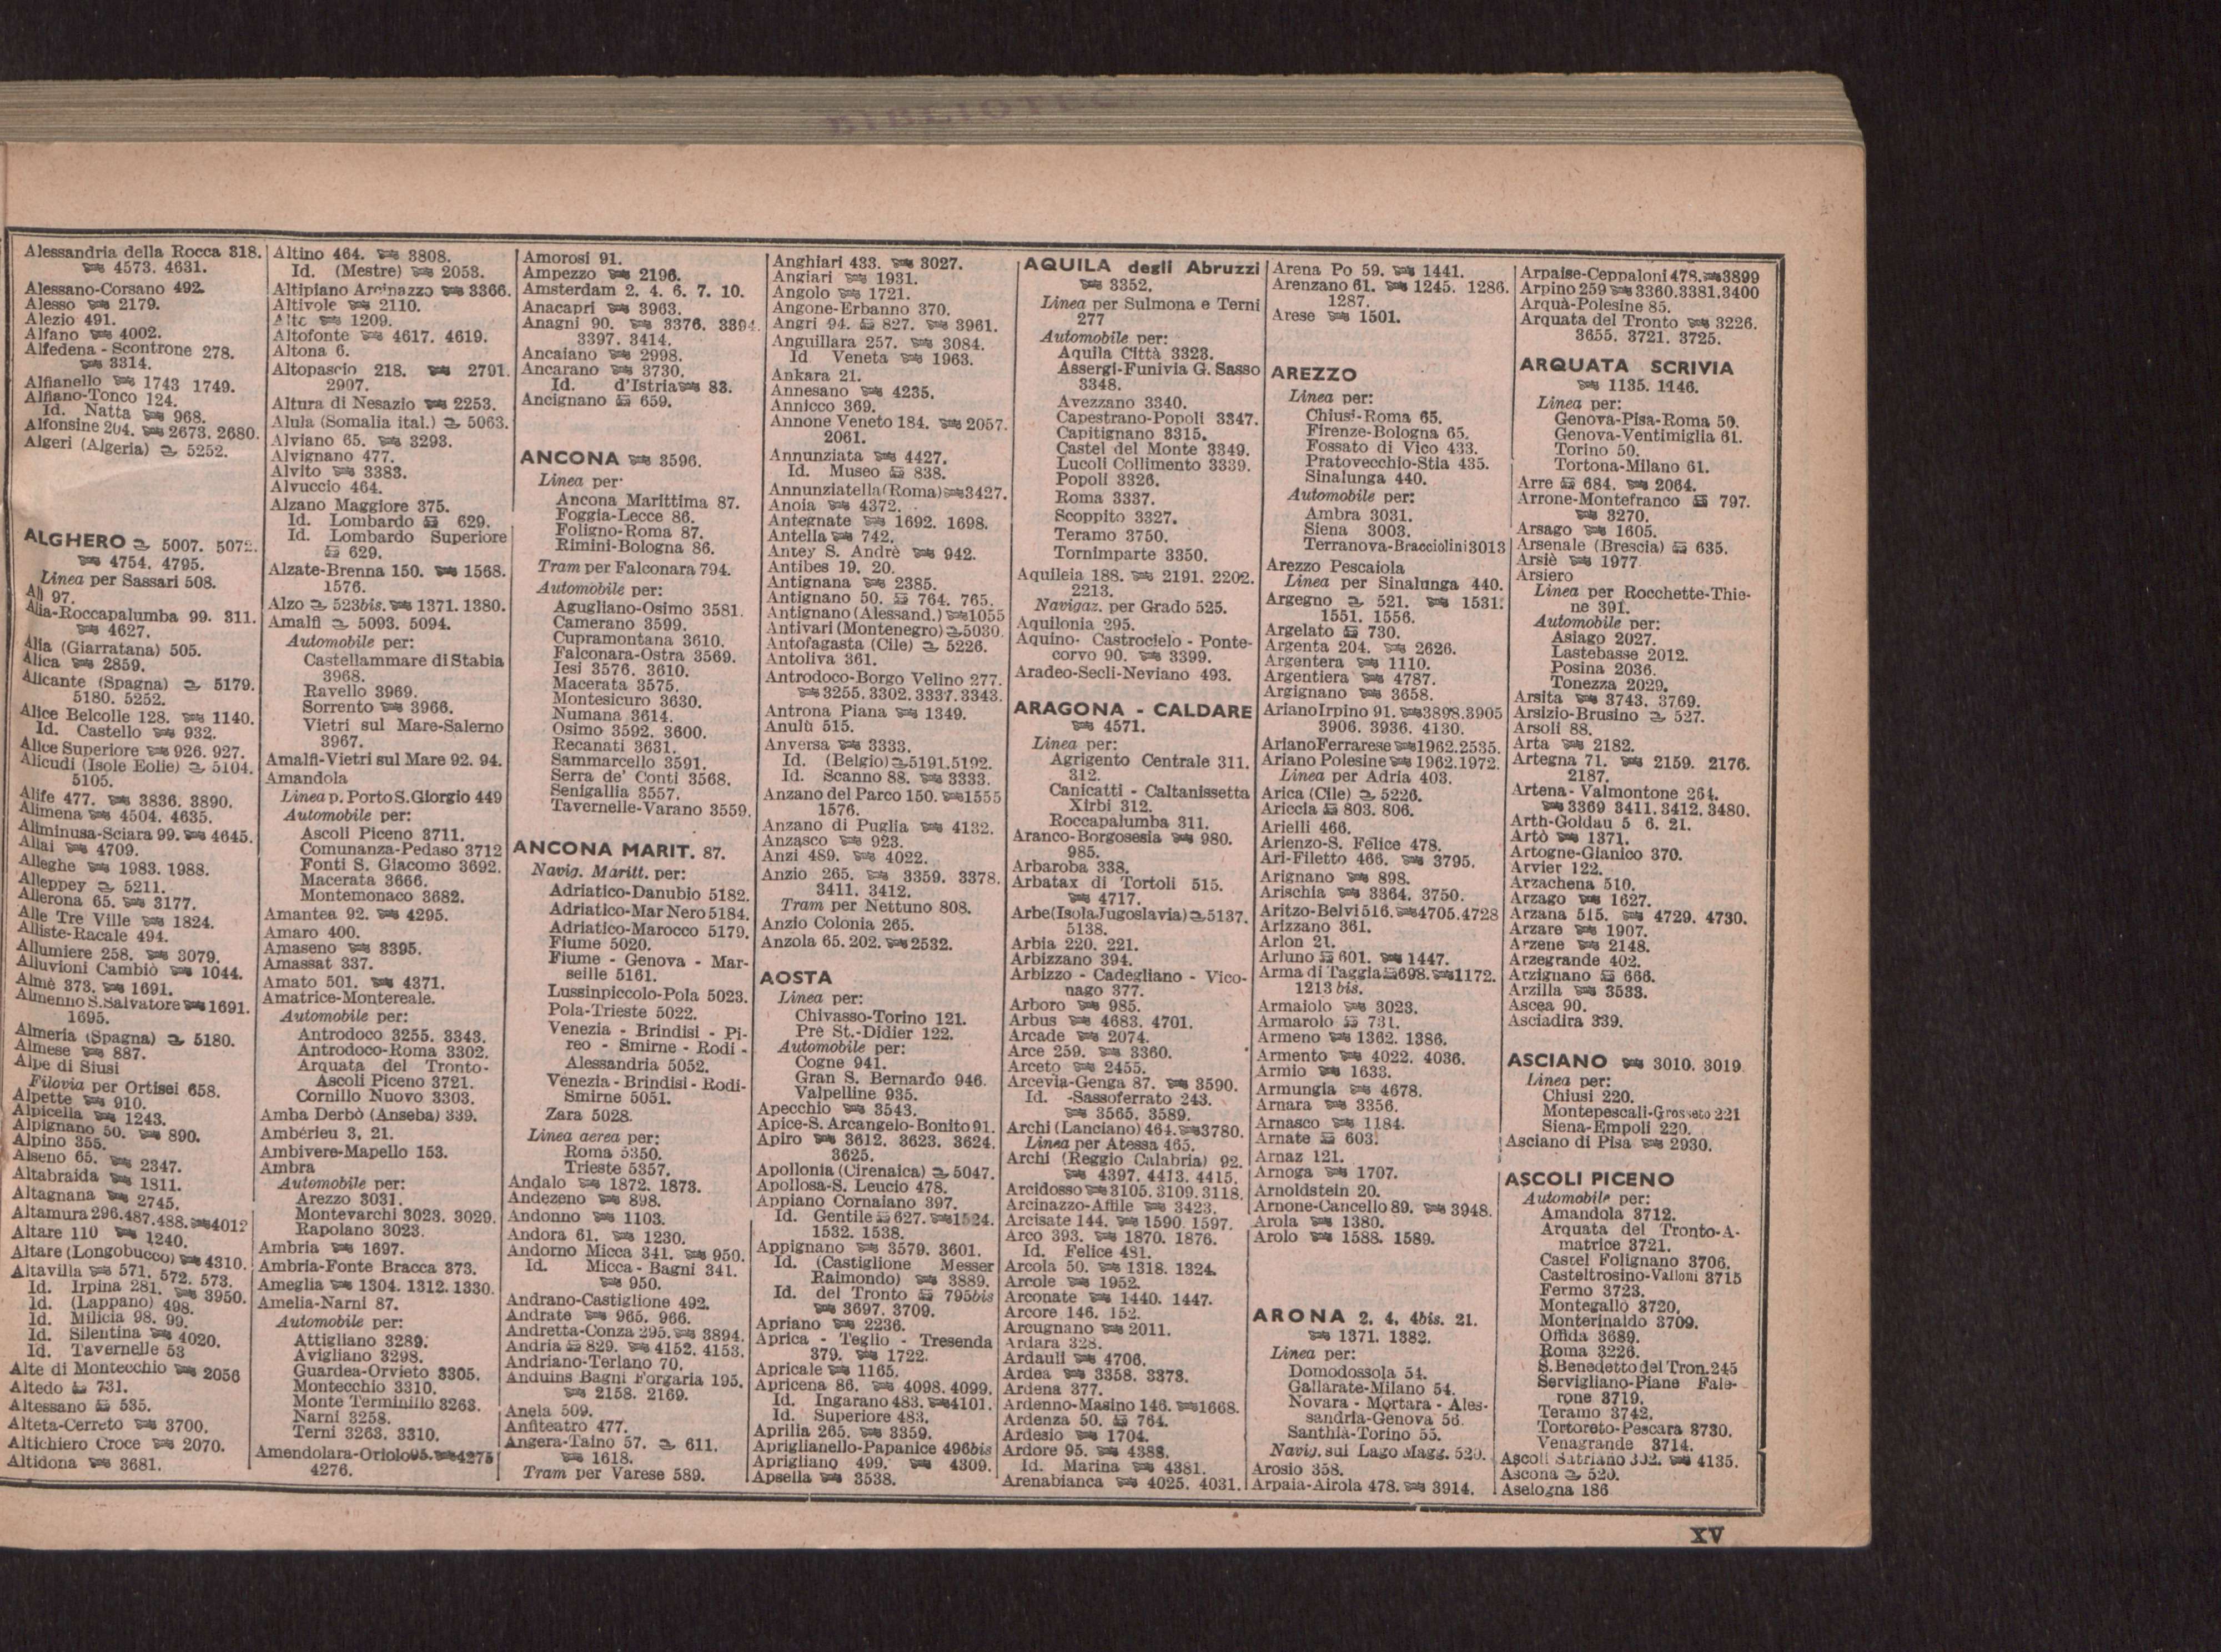 BIBLIOTECA
Alessandria della Rocca 318.
4573. 4631.
Alessano-Corsano 492.
Alesso 2179.
Alezio 491.
Alfano 4002.
Alfedena - Scontrone 278.
3314.
Alfianello 1743 1749.
Alfiano-Tonco 124.
Id. Natta 968.
Alfonsine 204. 2673. 2680.
Algeri (Algeria) 5252.
ALGHERO 5007. 5072.
4754. 4795.
Linea per Sassari 508.
Alì 97.
Alia-Roccapalumba 99. 311.
4627.
Alia (Giarratana) 505.
Alica 2859.
Alicante (Spagna) 5179.
5180. 5252.
Alice Belcolle 128. 1140.
Id. Castello 932.
Alice Superiore 926. 927.
Alicudi (Isole Eolie) 5104.
5105.
Alife 477. 3836. 3890.
Alimena 4504. 4635.
Aliminusa-Sciara 99. 4645.
Allai 4709.
Alleghe 1983. 1988.
Alleppey 5211.
Allerona 65. 3177.
Alle Tre Ville 1824.
Alliste-Racale 494.
Allumiere 258. 3079.
Alluvioni Cambiò 1044.
Almè 373. 1691.
Almenno S. Salvatore 1691.
1695.
Almeria (Spagna) 5180.
Almese 887.
Alpe di Siusi
Filovia per Ortisei 658.
Alpette 910.
Alpicella 1243.
Alpignano 50. 890.
Alpino 355.
Alseno 65. 2347.
Altabraida 1811.
Altagnana 2745.
Altamura 296. 487. 488. 4012
Altare 110 1240.
Altare (Longobucco) 4310.
Altavilla 571. 572. 573.
Id. Irpina 281. 3950.
Id. (Lappano) 498.
Id. Milicia 98. 99.
Id. Silentina 4020.
Id. Tavernelle 53
Alte di Montecchio 2056
Altedo 731.
Altessano 535.
Alteta-Cerreto 3700.
Altichiero Croce 2070.
Altidona 3681.
Altino 464. 3808.
Id. (Mestre) 2053.
Altipiano Arcinazzo 3366.
Altivole 2110.
Alto 1209.
Altofonte 4617. 4619.
Altona 6.
Altopascio 218. 2791.
2907.
Altura di Nesazio 2253.
Alula (Somalia ital.) 5063.
Alviano 65. 3293.
Alvignano 477.
Alvito 3383.
Alvuccio 464.
Alzano Maggiore 375.
Id. Lombardo 629.
Id. Lombardo Superiore
629.
Alzate-Brenna 150. 1568.
1576.
Alzo 523bis. 1371. 1380.
Amalfi 5093. 5094.
Automobile per:
Castellammare di Stabia
3968.
Ravello 3969.
Sorrento 3966.
Vietri sul Mare-Salerno
3967.
Amalfi-Vietri sul Mare 92. 94.
Amandola
Linea p. Porto S. Giorgio 449
Automobile per:
Ascoli Piceno 3711.
Comunanza-Pedaso 3712
Fonti S. Giacomo 3692.
Macerata 3666.
Montemonaco 3682.
Amantea 92. 4295.
Amaro 400.
Amaseno 3395.
Amassat 337.
Amato 501. 4371.
Amatrice-Montereale.
Automobile per:
Antrodoco 3255. 3343.
Antrodoco-Roma 3302.
Arquata del Tronto-
Ascoli Piceno 3721.
Cornillo Nuovo 3303.
Amba Derbò (Anseba) 339.
Ambérieu 3. 21.
Ambivere-Mapello 153.
Ambra
Automobile per:
Arezzo 3031.
Montevarchi 3023. 3029.
Rapolano 3023.
Ambria 1697.
Ambria-Fonte Bracca 373.
Ameglia 1304. 1312. 1330.
Amelia-Narni 87.
Automobile per:
Attigliano 3289.
Avigliano 3298.
Guardea-Orvieto 3305.
Montecchio 3310.
Monte Terminillo 3263.
Narni 3258.
Terni 3263. 3310.
Amendolara-Oriolo 95. 4275
4276.
Amorosi 91.
Ampezzo 2196.
Amsterdam 2. 4. 6. 7. 10.
Anacapri 3963.
Anagni 90. 3376. 3394.
3397. 3414.
Ancaiano 2998.
Ancarano 3730.
Id. d'Istria 83.
Ancignano 659.
ANCONA 3596.
Linea per
Ancona Marittima 87.
Foggia-Lecce 86.
Foligno-Roma 87.
Rimini-Bologna 86.
Tram per Falconara 794.
Automobile per:
Agugliano-Osimo 3581.
Camerano 3599.
Cupramontana 3610.
Falconara-Ostra 3569.
Iesi 3576. 3610.
Macerata 3575.
Montesicuro 3630.
Numana 3614.
Osimo 3592. 3600.
Recanati 3631.
Sammarcello 3591.
Serra de' Conti 3568.
Senigallia 3557.
Tavernelle-Varano 3559.
ANCONA MARIT. 87.
Navig. Maritt. per:
Adriatico-Danubio 5182.
Adriatico-Mar Nero 5184.
Adriatico-Marocco 5179.
Fiume 5020.
Fiume - Genova - Mar-
seille 5161.
Lussinpiccolo-Pola 5023.
Pola-Trieste 5022.
Venezia - Brindisi - Pi-
reo - Smirne - Rodi -
Alessandria 5052.
Venezia - Brindisi - Rodi-
Smirne 5051.
Zara 5028.
Linea aerea per:
Roma 5350.
Trieste 5357.
Andalo 1872. 1873.
Andezeno 898.
Andonno 1103.
Andora 61. 1230.
Andorno Micca 341. 950.
Id. Micca - Bagni 341.
950.
Andrano-Castiglione 492.
Andrate 965. 966.
Andretta-Conza 295. 3894.
Andria 829. 4152. 4153.
Andriano-Terlano 70.
Anduins Bagni Forgaria 195.
2158. 2169.
Anela 509.
Anfiteatro 477.
Angera-Taino 57. 611.
1618.
Tram per Varese 589.
Anghiari 433. 3027.
Angiari 1931.
Angolo 1721.
Angone-Erbanno 370.
Angri 94. 827. 3961.
Anguillara 257. 3084.
Id Veneta 1963.
Ankara 21.
Annesano 4235.
Annicco 369.
Annone Veneto 184. 2057.
2061.
Annunziata 4427.
Id. Museo 838.
Annunziatella (Roma) 3427.
Anoia 4372.
Antegnate 1692. 1698.
Antella 742.
Antey S. Andrè 942.
Antibes 19. 20.
Antignana 2385.
Antignano 50. 764. 765.
Antignano (Alessand.) 1055
Antivari (Montenegro) 5030.
Antofagasta (Cile) 5226.
Antoliva 361.
Antrodoco-Borgo Velino 277.
3255. 3302. 3337. 3343.
Antrona Piana 1349.
Anulù 515.
Anversa 3333.
Id. (Belgio) 5191. 5192.
Id. Scanno 88. 3333.
Anzano del Parco 150. 1555
1576.
Anzano di Puglia 4132.
Anzasco 923.
Anzi 489. 4022.
Anzio 265. 3359. 3378.
3411. 3412.
Tram per Nettuno 808.
Anzio Colonia 265.
Anzola 65. 202. 2532.
AOSTA
Linea per:
Chivasso-Torino 121.
Prè St.-Didier 122.
Automobile per:
Cogne 941.
Gran S. Bernardo 946.
Valpelline 935.
Apecchio 3543.
Apice-S. Arcangelo-Bonito 91.
Apiro 3612. 3623. 3624.
3625.
Apollonia (Cirenaica) 5047.
Apollosa-S. Leucio 478.
Appiano Cornaiano 397.
Id. Gentile 627. 1524.
1532. 1538.
Appignano 3579. 3601.
Id. (Castiglione Messer
Raimondo) 3889.
Id. del Tronto 795bis
3697. 3709.
Apriano 2236.
Aprica - Teglio - Tresenda
379. 1722.
Apricale 1165.
Apricena 86. 4098. 4099.
Id. Ingarano 483. 4101.
Id. Superiore 483.
Aprilia 265. 3359.
Apriglianello-Papanice 496bis
Aprigliano 499. 4309.
Apsella 3538.
AQUILA degli Abruzzi
3352.
Linea per Sulmona e Terni
277
Automobile per:
Aquila Città 3323.
Assergi-Funivia G. Sasso
3348.
Avezzano 3340.
Capestrano-Popoli 3347.
Capitignano 3315.
Castel del Monte 3349.
Lucoli Collimento 3339.
Popoli 3326.
Roma 3337.
Scoppito 3327.
Teramo 3750.
Tornimparte 3350.
Aquileia 188. 2191. 2202.
2213.
Navigaz. per Grado 525.
Aquilonia 295.
Aquino- Castrocielo - Ponte-
corvo 90. 3399.
Aradeo-Seclì-Neviano 493.
ARAGONA - CALDARE
4571.
Linea per:
Agrigento Centrale 311.
312.
Canicatti - Caltanissetta
Xirbi 312.
Roccapalumba 311.
Aranco-Borgosesia 980.
985.
Arbaroba 338.
Arbatax di Tortoli 515.
4717.
Arbe (Isola Jugoslavia) 5137.
5138.
Arbia 220. 221.
Arbizzano 394.
Arbizzo - Cadegliano - Vico-
nago 377.
Arboro 985.
Arbus 4683. 4701.
Arcade 2074.
Arce 259. 3360.
Arceto 2455.
Arcevia-Genga 87. 3590.
Id. -Sassoferrato 243.
3565. 3589.
Archi (Lanciano) 464. 3780.
Linea per Atessa 465.
Archi (Reggio Calabria) 92.
4397. 4413. 4415.
Arcidosso 3105. 3109. 3118.
Arcinazzo-Affile 3423.
Arcisate 144. 1590. 1597.
Arco 393. 1870. 1876.
Id. Felice 481.
Arcola 50. 1318. 1324.
Arcole 1952.
Arconate 1440. 1447.
Arcore 146. 152.
Arcugnano 2011.
Ardara 328.
Ardauli 4706.
Ardea 3358. 3373.
Ardena 377.
Ardenno-Masino 146. 1668.
Ardenza 50. 764.
Ardesio 1704.
Ardore 95. 4388.
Id. Marina 4381.
Arenabianca 4025. 4031.
Arena Po 59. 1441.
Arenzano 61. 1245. 1286.
1287.
Arese 1501.
AREZZO
Linea per:
Chiusi-Roma 65.
Firenze-Bologna 65.
Fossato di Vico 433.
Pratovecchio-Stia 435.
Sinalunga 440.
Automobile per:
Ambra 3031.
Siena 3003.
Terranova-Bracciolini 3013
Arezzo Pescaiola
Linea per Sinalunga 440.
Argegno 521. 1531.
1551. 1556.
Argelato 730.
Argenta 204. 2626.
Argentera 1110.
Argentiera 4787.
Argignano 3658.
Ariano Irpino 91. 3898. 3905
3906. 3936. 4130.
Ariano Ferrarese 1962. 2535.
Ariano Polesine 1962. 1972.
Linea per Adria 403.
Arica (Cile) 5226.
Ariccia 803. 806.
Arielli 466.
Arienzo-S. Felice 478.
Ari-Filetto 466. 3795.
Arignano 898.
Arischia 3364. 3750.
Aritzo-Belvì 516. 4705. 4728
Arizzano 361.
Arlon 21.
Arluno 601. 1447.
Arma di Taggia 698. 1172.
1213 bis.
Armaiolo 3023.
Armarolo 731.
Armeno 1362. 1386.
Armento 4022. 4036.
Armio 1633.
Armungia 4678.
Arnara 3356.
Arnasco 1184.
Arnate 603.
Arnaz 121.
Arnoga 1707.
Arnoldstein 20.
Arnone-Cancello 89. 3948.
Arola 1380.
Arolo 1588. 1589.
ARONA 2. 4. 4bis. 21.
1371. 1382.
Linea per:
Domodossola 54.
Gallarate-Milano 54.
Novara - Mortara - Ales-
sandria-Genova 56.
Santhià-Torino 55.
Navig. sul Lago Magg. 520.
Arosio 358.
Arpaia-Airola 478. 3914.
Arpaise-Ceppaloni 478. 3899
Arpino 259 3360. 3381. 3400
Arquà-Polesine 85.
Arquata del Tronto 3226.
3655. 3721. 3725.
ARQUATA SCRIVIA
1135. 1146.
Linea per:
Genova-Pisa-Roma 50.
Genova-Ventimiglia 61.
Torino 50.
Tortona-Milano 61.
Arre 684. 2064.
Arrone-Montefranco 797.
3270.
Arsago 1605.
Arsenale (Brescia) 635.
Arsiè 1977
Arsiero
Linea per Rocchette-Thie-
ne 391.
Automobile per:
Asiago 2027.
Lastebasse 2012.
Posina 2036.
Tonezza 2029.
Arsita 3743. 3769.
Arsizio-Brusino 527.
Arsoli 88.
Arta 2182.
Artegna 71. 2159. 2176.
2187.
Artena- Valmontone 264.
3369 3411. 3412. 3480.
Arth-Goldau 5 6. 21.
Artò 1371.
Artogne-Gianico 370.
Arvier 122.
Arzachena 510.
Arzago 1627.
Arzana 515. 4729. 4730.
Arzare 1907.
Arzene 2148.
Arzegrande 402.
Arzignano 666.
Arzilla 3533.
Ascea 90.
Asciadira 339.
ASCIANO 3010. 3019
Linea per:
Chiusi 220.
Montepescali-Grosseto 221
Siena-Empoli 220.
Asciano di Pisa 2930.
ASCOLI PICENO
Automobile per:
Amandola 3712.
Arquata del Tronto-A-
matrice 3721.
Castel Folignano 3706.
Casteltrosino-Valloni 3715
Fermo 3723.
Montegallo 3720.
Monterinaldo 3709.
Offida 3689.
Roma 3226.
S. Benedetto del Tron. 245
Servigliano-Piane Fale-
rone 3719.
Teramo 3742.
Tortoreto-Pescara 3730.
Venagrande 3714.
Ascoli Satriano 302. 4135.
Ascona 520.
Aselogna 186
XV